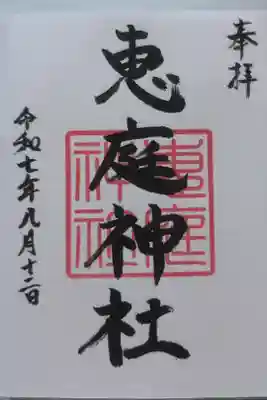 奉拝
恵庭神社
恵庭
神社
令和七年九月十二日